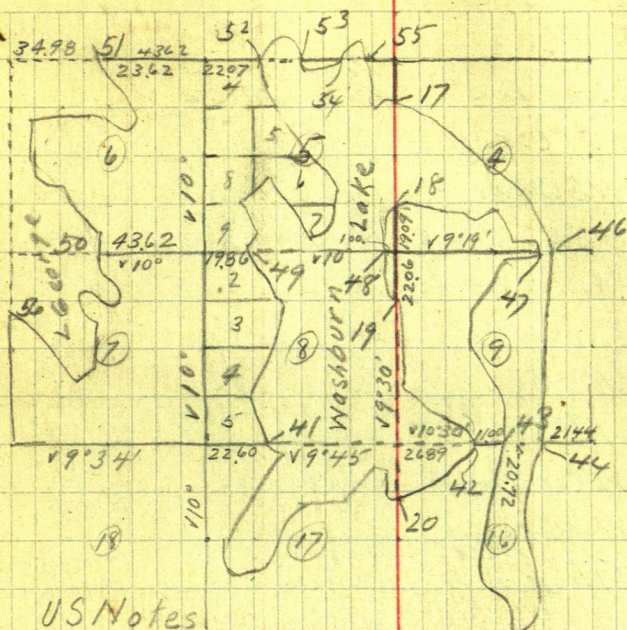 52 53
34.98 51 4362 55
23.62 2207
4 54 17
5
6 5 4
V10°
8 6 Lake 18
7
9 1909
L George 50 43.62 V9°19' 46
V10° 19.86 49 V10° 48
2 2206 47
56 19
3
7 8 Washburn 9
V10° 4 V9°30'
5 41 V10°30' 1100 43 2144
V9°34' 22.60 V9°45 2689 44
42 20.72
V10° 20
18 17 16
US Notes